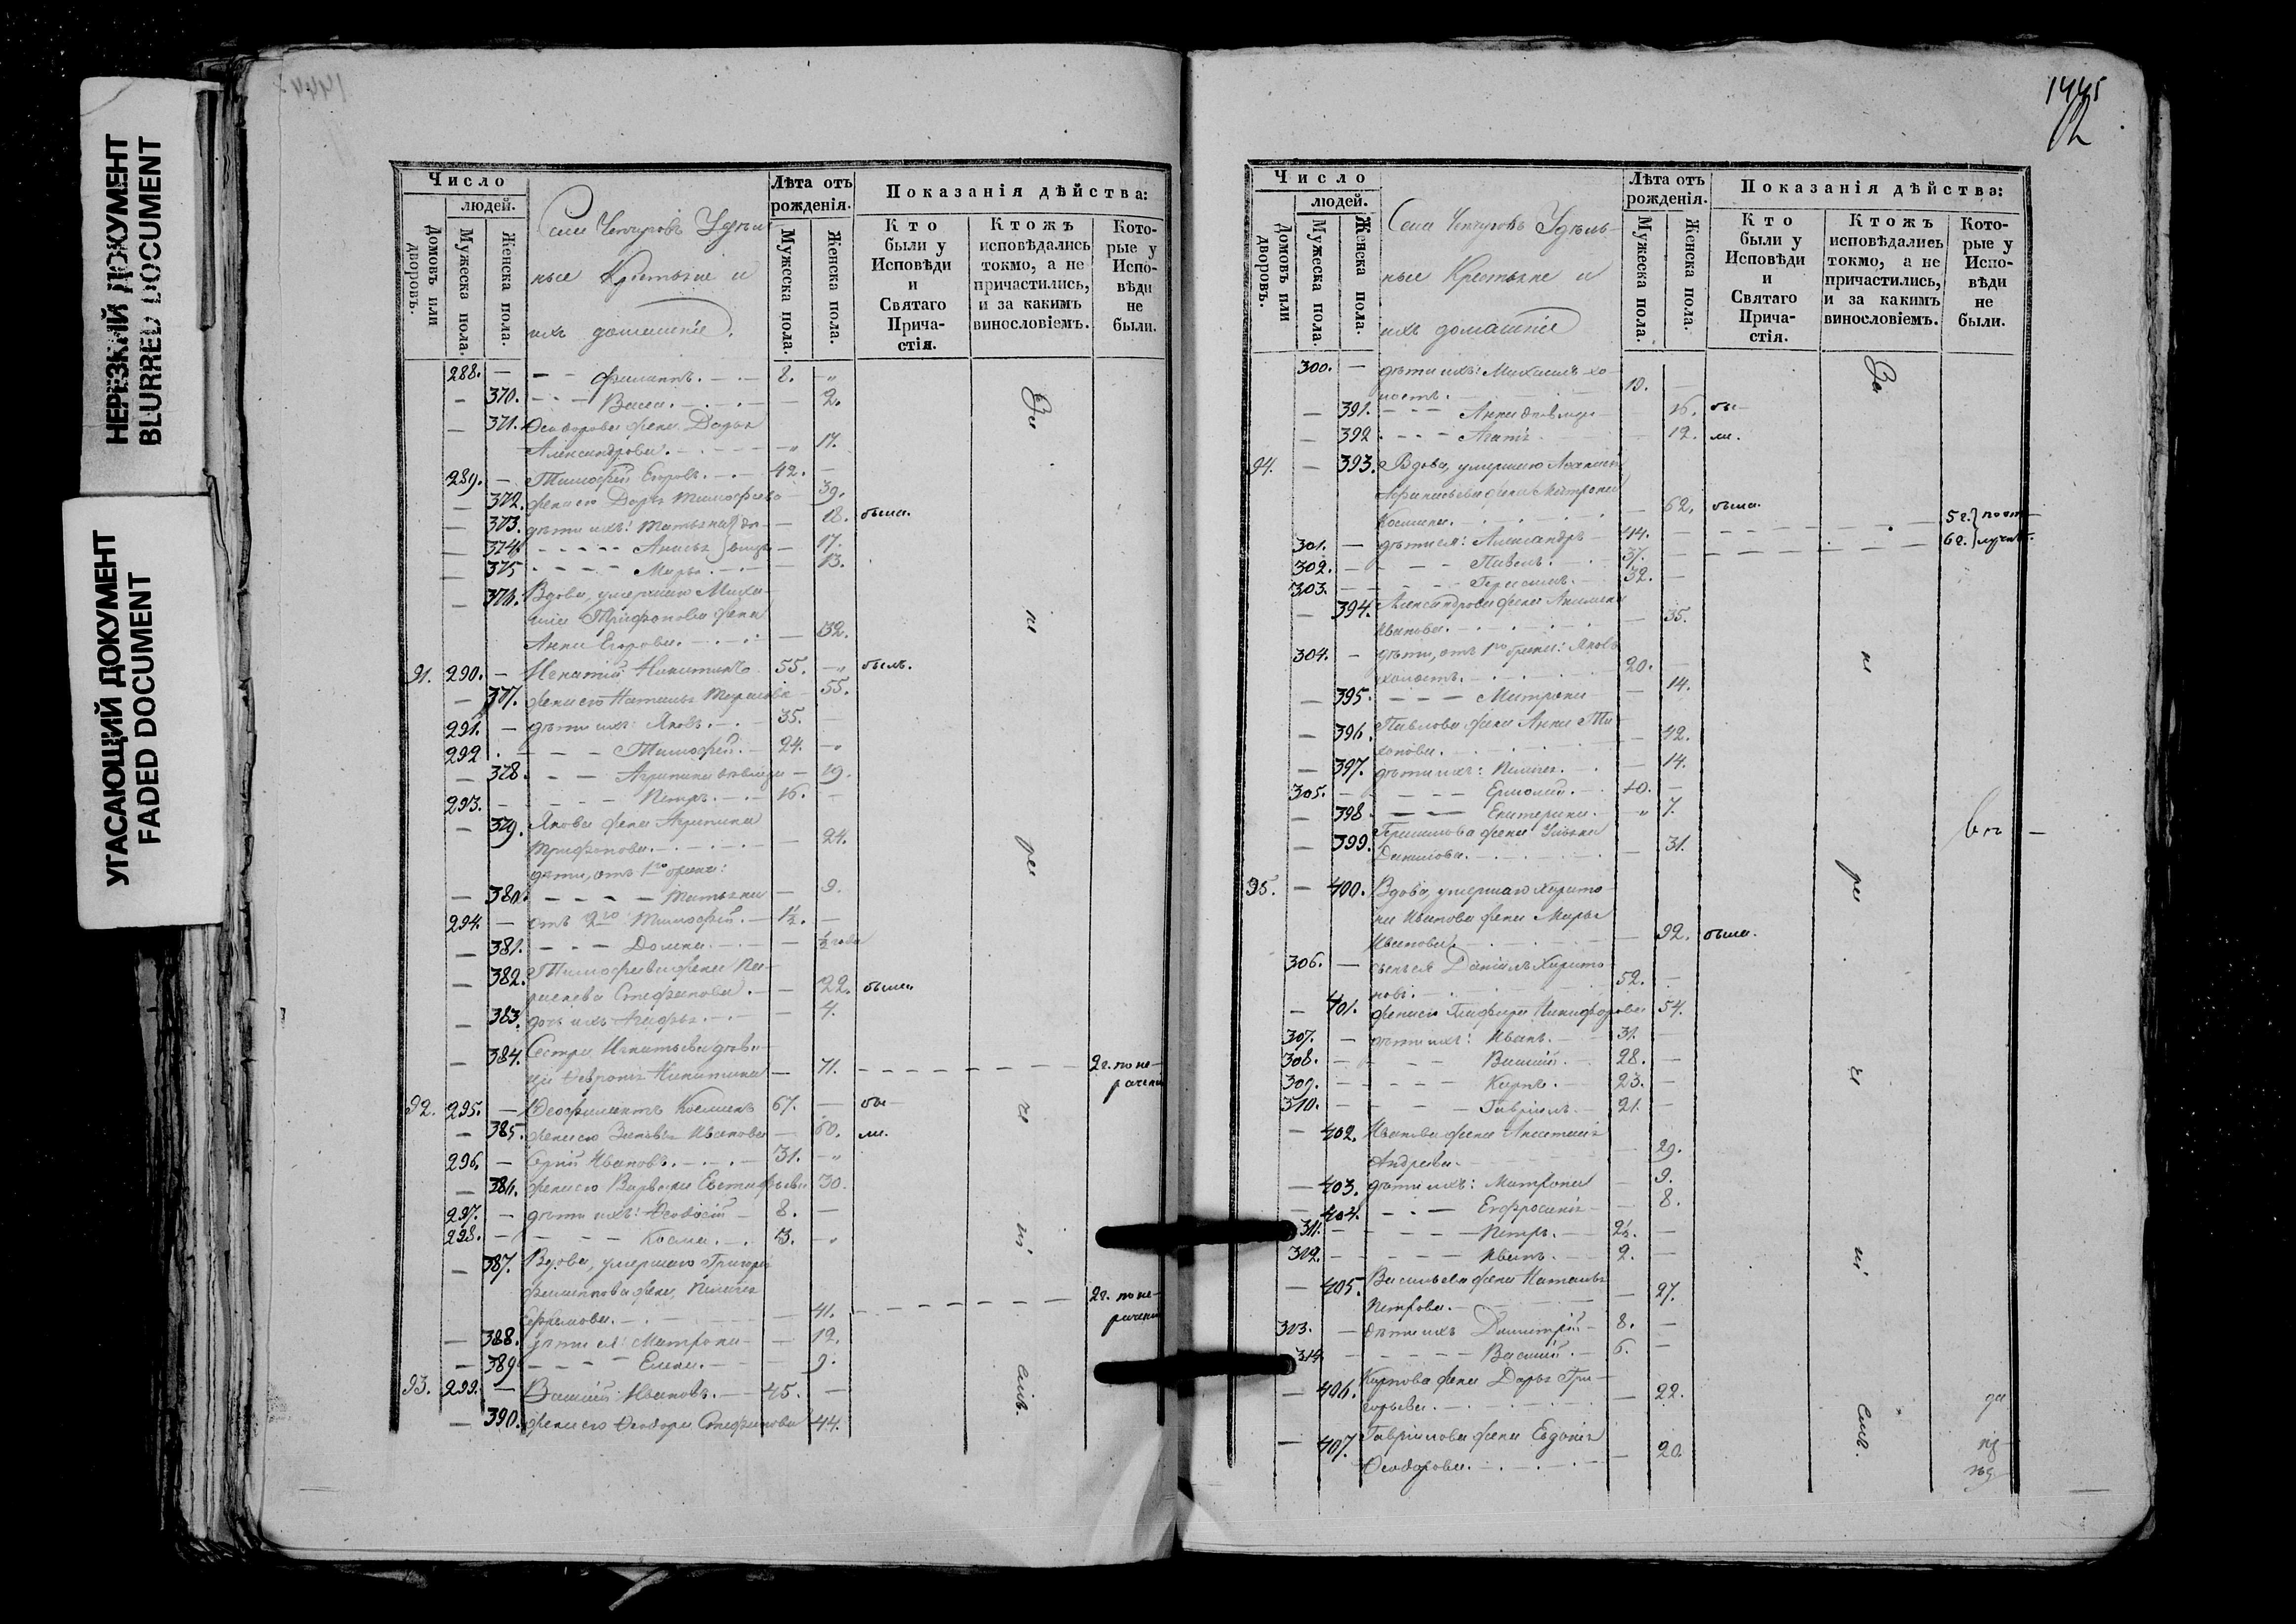 НЕРЕЗКИЙ ДОКУМЕНТ
BLURRED DOCUMENT
УГАСАЮЩИЙ ДОКУМЕНТ
FADED DOCUMENT
Число
людей.
Домовъ или дворовъ.
Мужеска пола.
Женска пола.
Села Чепчуговъ Удѣль-
ные Крестьяне и
ихъ домашніе.
Лѣта отъ рожденія.
Мужеска пола.
Женска пола.
Показанія дѣйства:
Кто были у Исповѣди и Святаго Прича-стія.
Ктожъ исповѣдались токмо, а не причастились, и за какимъ винословіемъ.
Кото-рые у Испо-вѣди не были.
288. — — — Филиппъ. — 8. —
— 370. — — — Васса. — 2.
— 371. Ѳеодорова жена Дарья
Александрова. — 17.
289. — Тимофей Егоровъ. — 42. —
— 372. жена его Дарья Тимофеева — 39.
— 373. дѣти ихъ: Татьяна — 18. была.
— 374. — — — 17.
— 375 — — — Марья — 13.
— 376. Вдова, умершаго Миха-
ила Трифонова жена
Анна Егорова. — 32.
91. 290. — Игнатій Никитинъ 55. — былъ.
— 377. жена его Наталья — 55.
291. — дѣти ихъ: Яковъ. — 35. —
292. — — — Тимофей. — 24. —
— 378. — — Агрипина дѣвица — 19.
293. — — — Петръ. — 16. —
— 379. Якова жена Агрипина
Трифонова. — 24.
дѣти, отъ 1го брака:
— 380. — — — Татьяна — 9.
294. — отъ 2го Тимофей. — 1½. —
— 381. — — — Домна — ½ года
— 382. Тимофеева жена Па-
раскева Стефанова. — 22. была
— 383. дочь ихъ Агафья — 4.
— 384. Сестра Игнатьева дѣви-
ца Февронія Никитина — 71. — 2г. по не-
раченію
92. 295. — Ѳеофилактъ Космин 67. — бы—
— 385. жена его Зиновья Иванова — 60. ли.
296. — Иванова. — 31. —
— 386. жена его Варвара Евстафьева 30.
297. — дѣти ихъ: Ѳеодосій — 8. —
298. — — — Косма. — 3. —
— 387. Вдова, умершаго Григорія
Филиппова жена, Пелагея
Ефремова. — 41. — 2г. по не-
раченію
— 388. дѣти ея: Матрона — 12.
— 389 — — — Елена. — 9.
93. 299. — Василій Ивановъ. — 45. —
— 390. жена его Ѳеодора Стефанова 44.
За не ра че ні емъ.
1445
Число
людей.
Домовъ или дворовъ.
Мужеска пола.
Женска пола.
Села Чепчуговъ Удѣль-
ные Крестьяне и
ихъ домашніе
Лѣта отъ рожденія.
Мужеска пола.
Женска пола.
Показанія дѣйства:
Кто были у Исповѣди и Святаго Прича-стія.
Ктожъ исповѣдались токмо, а не причастились, и за какимъ винословіемъ.
Кото-рые у Испо-вѣди не были.
300. — дѣти ихъ: Михаилъ хо-
лостъ. — 19. —
— 391. — — — Анна дѣвица — 16. бы—
— 392 — — — Агапія — 12. ли.
94. — 393. Вдова, умершаго
Афанасьева жена Матрона
Космина. — 62. была.
301. — дѣти ея: Александръ — 44. — 5г.
302. — — — Павелъ. 37. — 6г.
303. — — — Герасимъ. 32. —
— 394. Александрова жена
Иванова. — 35.
304. — дѣти, отъ 1го брака: Яковъ
холостъ. 20. —
— 395. — — — Матрона — 14.
— 396. Павлова жена Анна Ти-
хонова. — 42.
— 397. дѣти ихъ: Пелагея. — 14.
305. — — — Ермолай. 10. —
— 398 — — — Екатерина. 7.
— 399. Герасимова жена Ульяна
Данилова. — 31.
95. — 400. Вдова, умершаго Харито-
на Иванова жена Марья
Иванова. — 92. была.
306. — сынъ ея Даніилъ Харито-
новъ. 52. —
— 401. жена его Гликерія Никифорова 54.
307. — дѣти ихъ: Иванъ. 31. —
308. — — — Василій. 28. —
309. — — — Карпъ. 23. —
310. — — — Гавріилъ. 21. —
— 402. Иванова жена Анастасія
Андреева. — 29.
— 403. дѣти ихъ: Матрона — 9.
— 404. — — — Евфросинія — 8.
311. — — — Петръ. —
312. — — — Иванъ. 2. —
— 405. Васильева жена Наталья
Петрова. — 27.
313. — дѣти ихъ Димитрій — 8. —
314. — — — Василій. 6. —
— 406. Карпова жена Дарья Гри-
горьева. — 22.
— 407. Гавріилова жена Евдокія
Ѳеодорова. — 20.
За не ра че ні емъ.